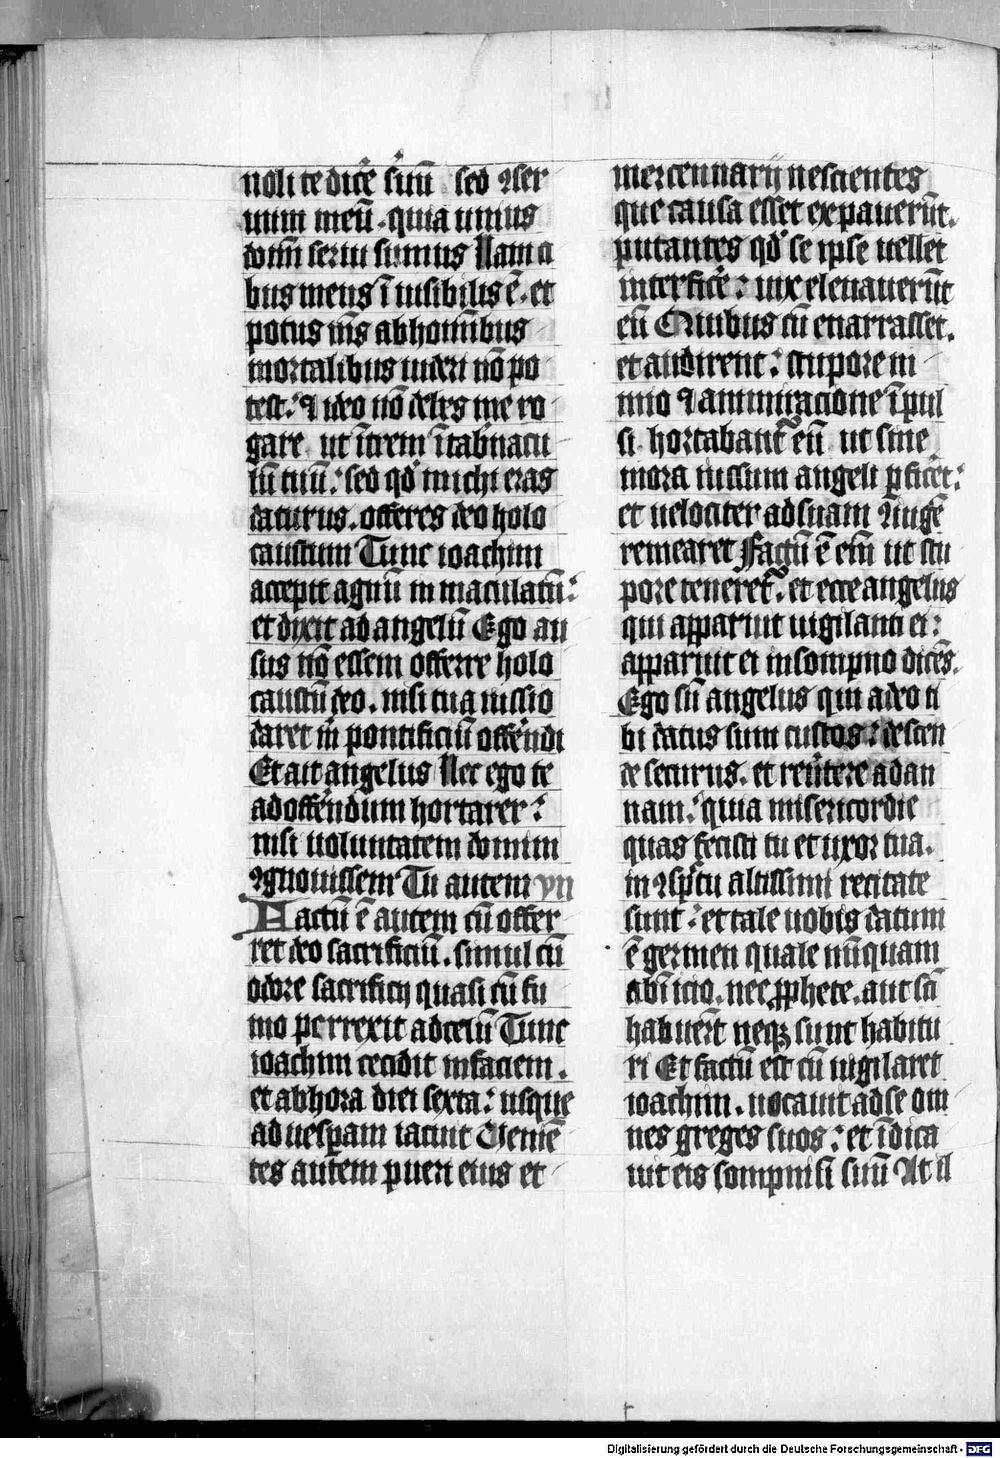 noli te dicẽ ẜuũ sed ꝯser
uum meũ · quia unius
domĩ serui sumus Nam ci
bus meus ĩ uisibilis ẽ · et
potus mẽs ab hominibus
mortalibus uideri nõ po
test : et ideo nõ debes me ro
gare ut ĩtrem ĩ tab̃nacu
lũ tuũ : sed qď michi eras
daturus · offeres deo holo
caustum Tunc ioachim
accepit agnũ in maculatũ :
et dixit ad angelũ Ego au
sus nõ essem offerre holo
caustũ deo · nisi tua iussio
daret m̃ pontificiũ offẽndi
Et ait angelus Nec ego te
ad offẽndum hortarer :
nisi uoluntatem domini
ꝯgnouissem Tu autem yn
Factũ ẽ autem cũ offer
ret deo sacrificiũ · simul cũ
odore sacrificij quasi cũ fu
mo perrexit ad celũ Tunc
ioachim cecidit in faciem ·
et ab hora diei sexta : usque
ad uesꝑam iacuit Ueniẽ
tes autem pueri eius et
mercennarij nescientes
que causa esset expauerũt ·
putantes qď se ipse uellet
interficẽ : uix eleuauerũt
eũ Quibus cũ enarrasset ·
et audirent : stupore ni
mio et ammiracione ĩpul
si hortabant̃ eũ ut sine
mora iussum angeli ꝑficẽt :
et uelociter ad suam ꝯiugẽ
remearet Factũ ẽ eñ ut stu
pore teneret̃ · et ecce angelus
qui apparuit uigilanti ei :
apparuit ei in sompno dicẽs ·
Ego sũ angelus qui a deo ti
bi datus sum custos : descen
de securus · et reũtere ad an
nam : quia misericordie
quas fecisti tu et uxor tua ·
in ꝯsp̃tu altissimi recitate
sunt : et tale uobis datum
ẽ germen quale nũquam
ab ĩicio · nec ꝓphete · aut sc̃i
habuer̃t neqꝫ sunt habitu
ri Et factũ est cũ uigilaret
ioachim · uocauit ad se om
nes greges suos : et ĩdica
uit eis sompniũ suũ At il
Digitalisierung gefördert durch die Deutsche Forschungsgemeinschaft - DFG